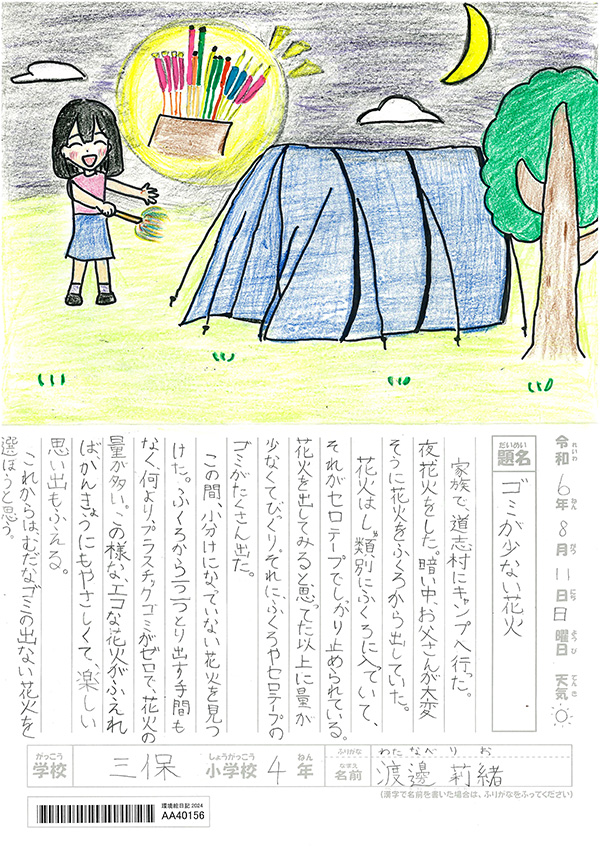 令和6年8月11日日曜日 天気
れいわ ねん がつ にち ようび てんき
だいめい
題名 ゴミが少ない花火
家族で、道志村にキャンプへ行った。
夜、花火をした。暗い中、お父さんが大変
そうに花火をふくろから出していた。
花火はし類別にふくろに入ていて、
それがセロテープでしっかり止められている。
花火を出してみると思ってた以上に量が
少なくてびっくり。それに、ふくろやセロテープの
ゴミがたくさん出た。
この間、小分けになっていない花火を見つ
けた。ふくろから一つ一つとり出す手間も
なく、何よりプラスチックゴミがゼロで、花火の
量が多い。この様な、エコな花火がふえれ
ばかんきょうにもやさしくて、楽しい
思い出もふえる。
これからは、むだなゴミの出ない花火を
選ぼうと思う。
がっこう しょうがっこう ねん
学校 三保 小学校 4年
ふりがな わたなべ りお
なまえ
名前 渡邉 莉緒
(漢字で名前を書いた場合は、ふりがなをふってください)
環境絵日記2024
AA40156